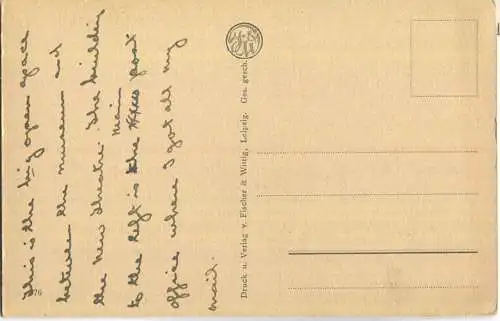 This is the big open space
between the museum and
the new theatre. The building
to the left is the main post
office where I got all my
mail.
76
Druck u. Verlag v. Fischer & Wittig, Leipzig. Ges. gesch.